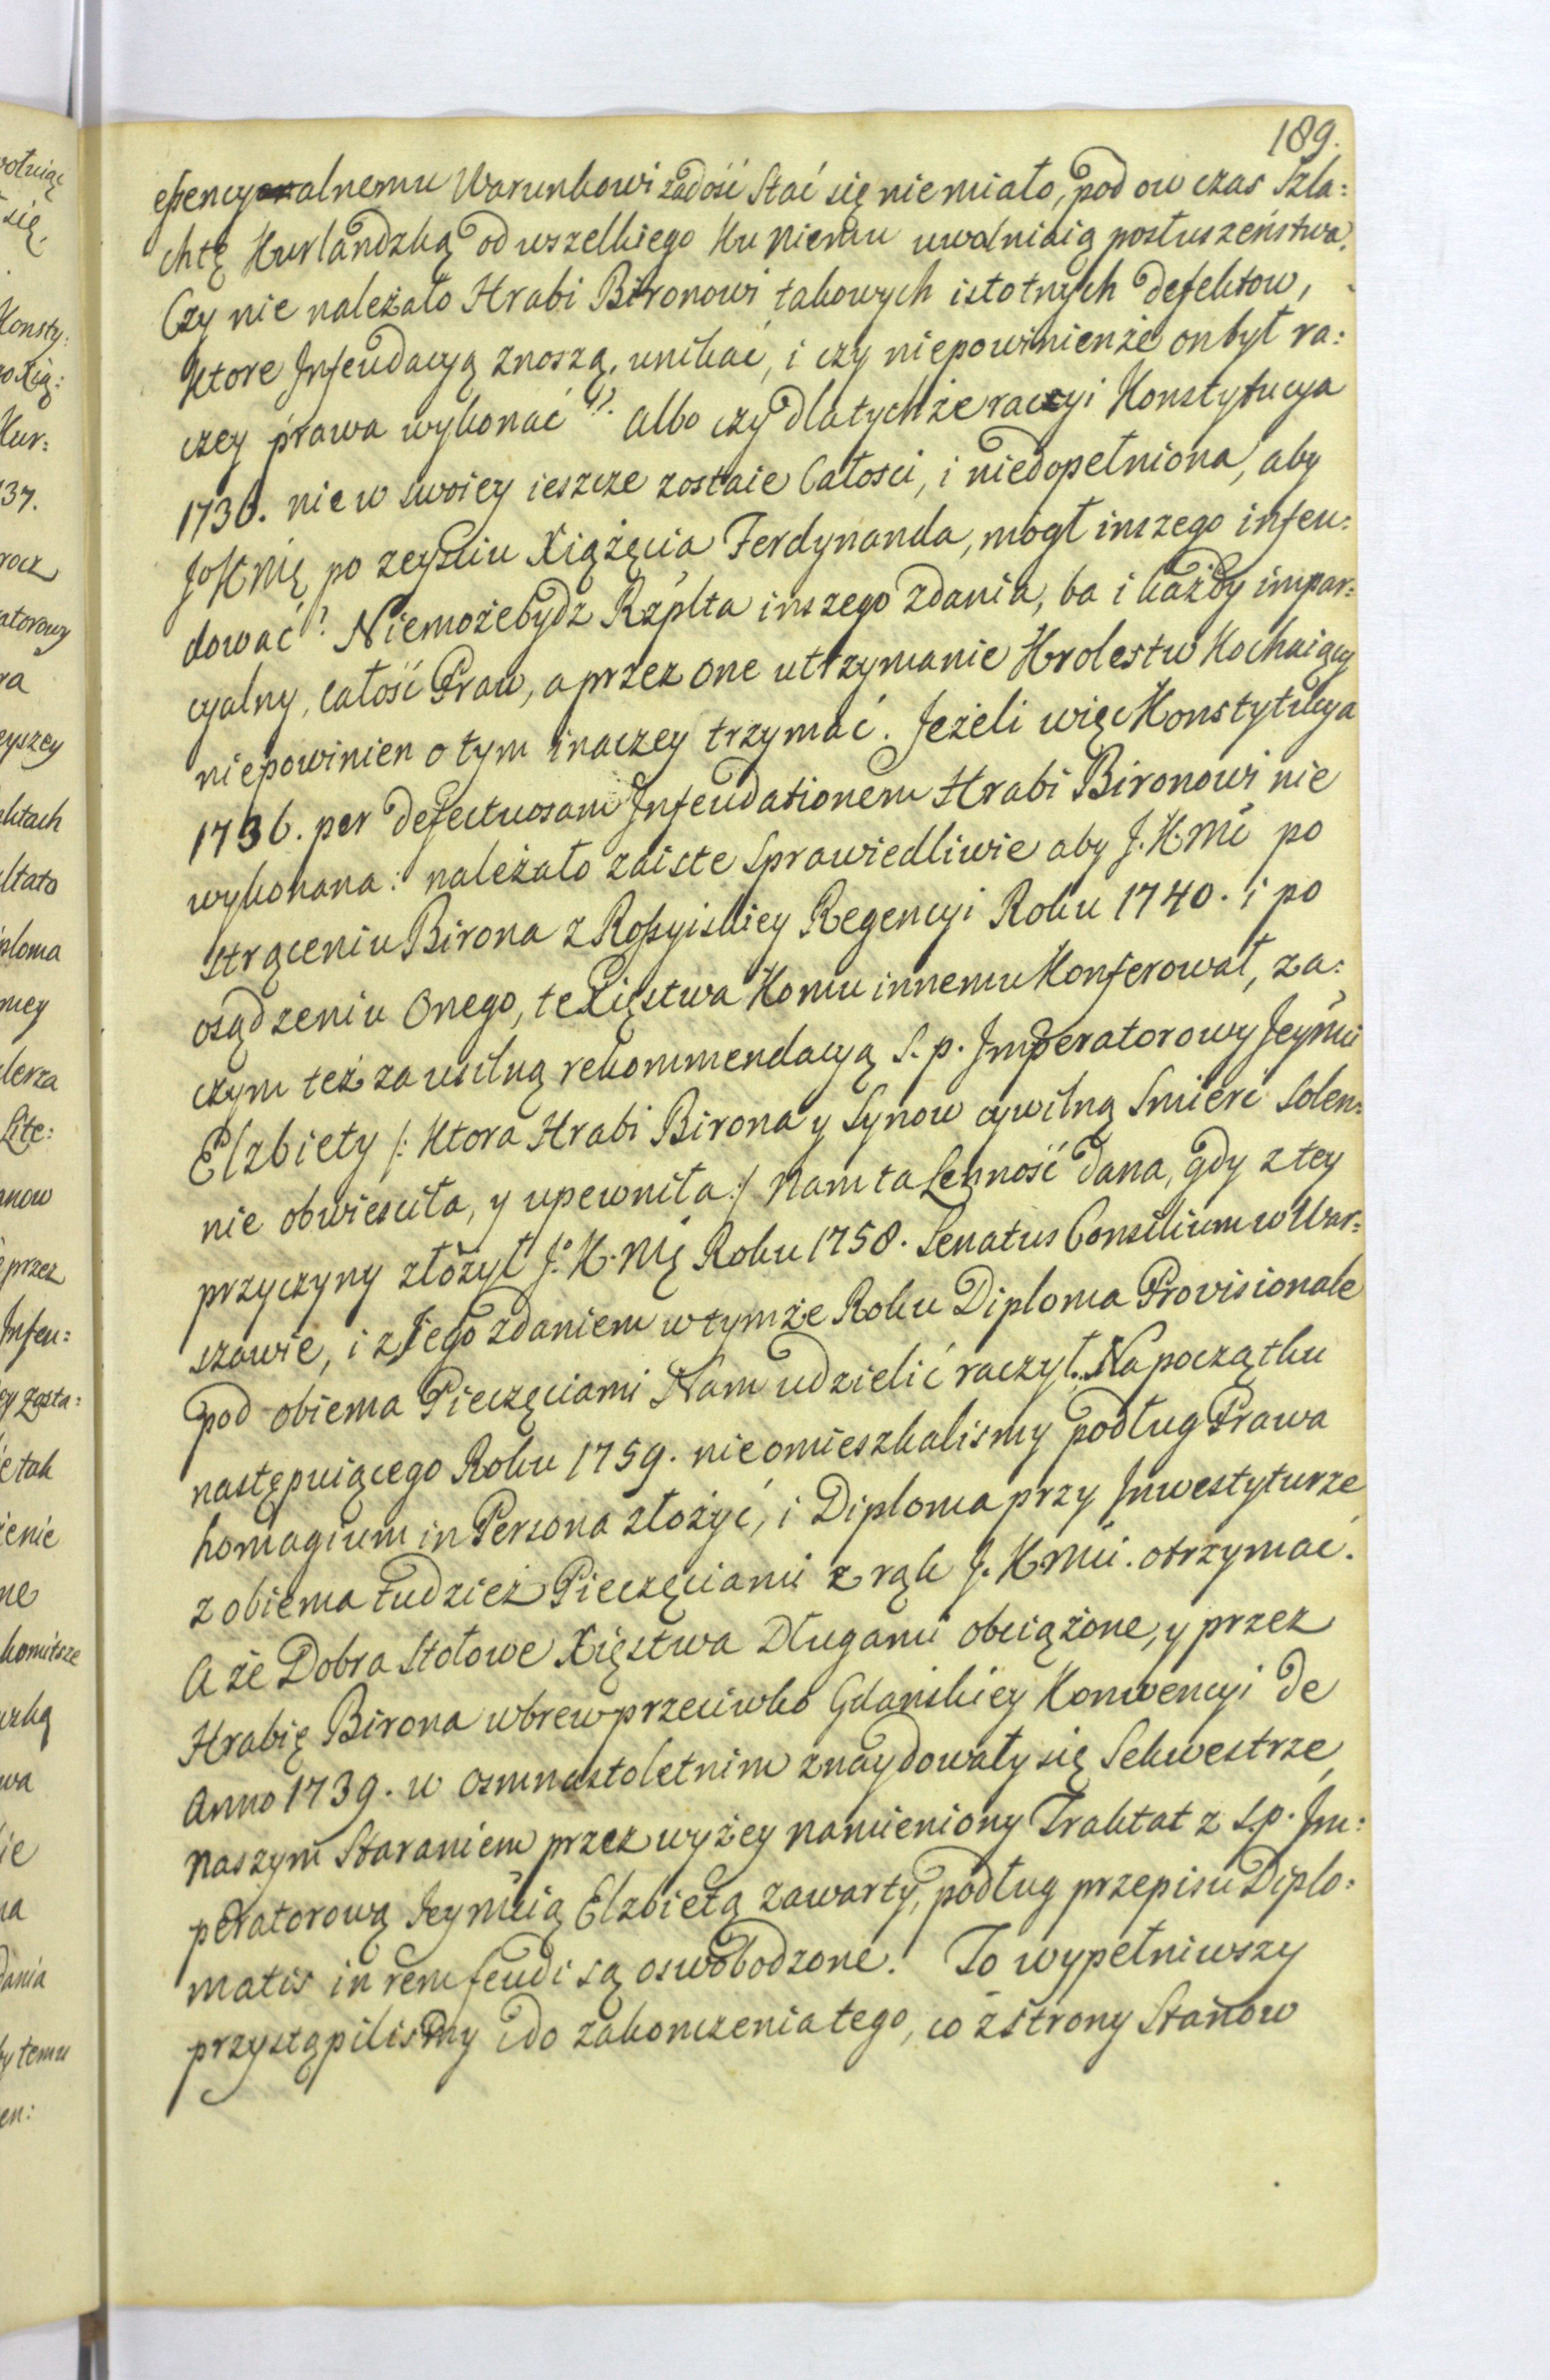 189.
essencyonalnemu Warunkowi zadość Stać się nie miało, pod ow czas Szla:
chtę Kurlandzką od wszelkiego Ku Niemu uwalniaią posłuszeństwa.
Czy nie należało Hrabi Bironowi takowych istotnych defektow,
Ktore Infeudacyą znoszą, unikać, i czy niepowinienże on był ra:
czey prawa wykonać?? albo czy dla tychże racyi Konstytucya
1736. nie w swoiey ieszcze zostaie Całosci, i niedopełniona, aby
JoKMć po zeysciu Xiążęcia Ferdynanda, mogł inszego infeu:
dować? Niemoże bydz Rzplta inszego zdania, ba i każdy impar:
cyalny, całość Praw, a przez one utrzymanie Krolestw Kochaiący
niepowinien o tym inaczey trzymać. Jeżeli więc Konstytucya
1736. per defectuosam Infeudationem Hrabi Bironowi nie
wykonana: należało zaiste Sprawiedliwie aby J. K. Mć po
strąceniu Birona z Rossyiskiey Regencyi Roku 1740. i po
osądzeniu Onego, te Xięstwa Komu innemu Konferował, za:
czym też za usilną rekommendacyą S. p. Imperatorowy Jeymci
Elzbiety /: Ktora Hrabi Birona y Synow cywilną Smierć Solen:
nie obwiescita, y upewniła :/ Nam ta Lenność dana, gdy z tey
przyczyny złożył J.o K. Mć Roku 1758. Senatus Consilium w War:
szawie, i z Jego zdaniem w tymże Roku Diploma Provisionale
pod obiema Pieczęciami Nam udzielić raczył. Na początku
następuiącego Roku 1759. nie omieszkalismy podług Prawa
homagium in Persona złożyć, i Diploma przy Inwestyturze
z obiema tudzież Pieczęciami z rąk J. K Mci. otrzymać.
A że Dobra Stołowe Xięstwa Długami obciążone, y przez
Hrabię Birona wbrew przeciwko Gdańskiey Konwencyi de
Anno 1739. w osmnastoletnim znaydowały się Sekwestrze,
Naszym Staraniem przez wyżey namieniony Traktat z S.p. Im:
peratorową Jeymcią Elzbietą zawarty, podług przepisu Diplo:
matis in rem feudi są oswobodzone. To wypełniwszy
przystąpilismy do zakonczenia tego, co z Strony Stanow